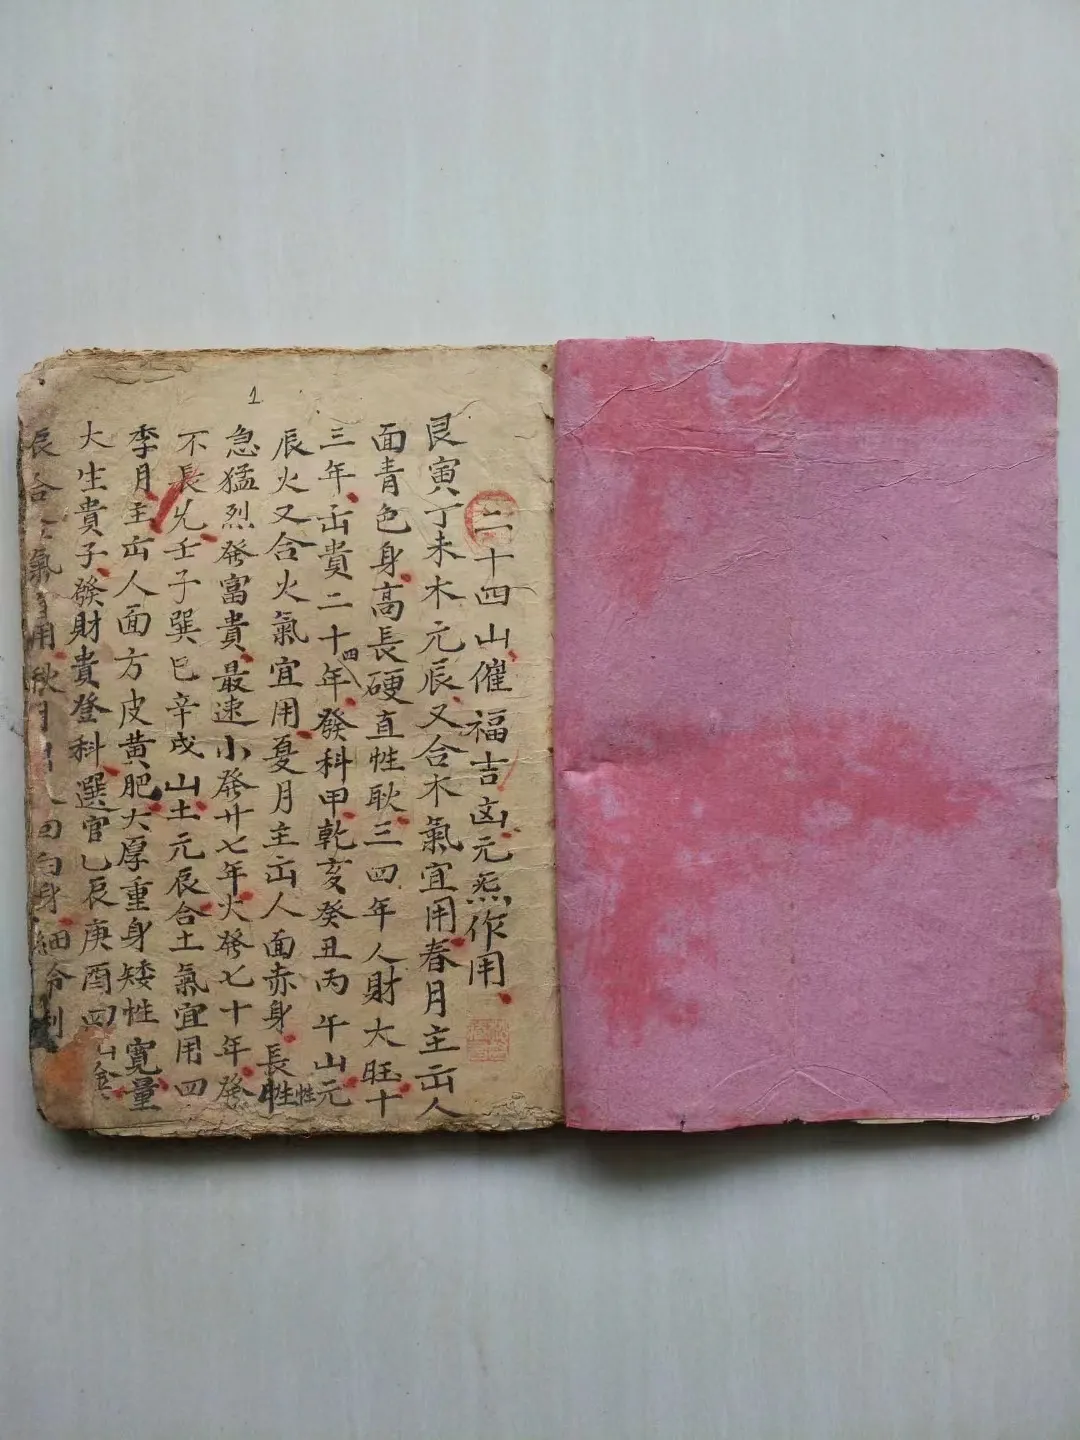 1
二十四山催福吉凶元炁作用
艮寅丁未木元辰又合木氣宜用春月主出人
面青色身高長硬直性耿三四年人財大旺十
三年出貴二十四年發科甲乾亥癸丑丙午山元
辰火又合火氣宜用夏月主出人面赤身長性
急猛烈發富貴最速小發廿七年大發七十年發
不長久壬子巽巳辛戌山土元辰合土氣宜用四
季月主出人面方皮黃肥大厚重身矮性寬量
大生貴子發財貴登科選官乙辰庚酉四山金
辰合氣用秋月白身細